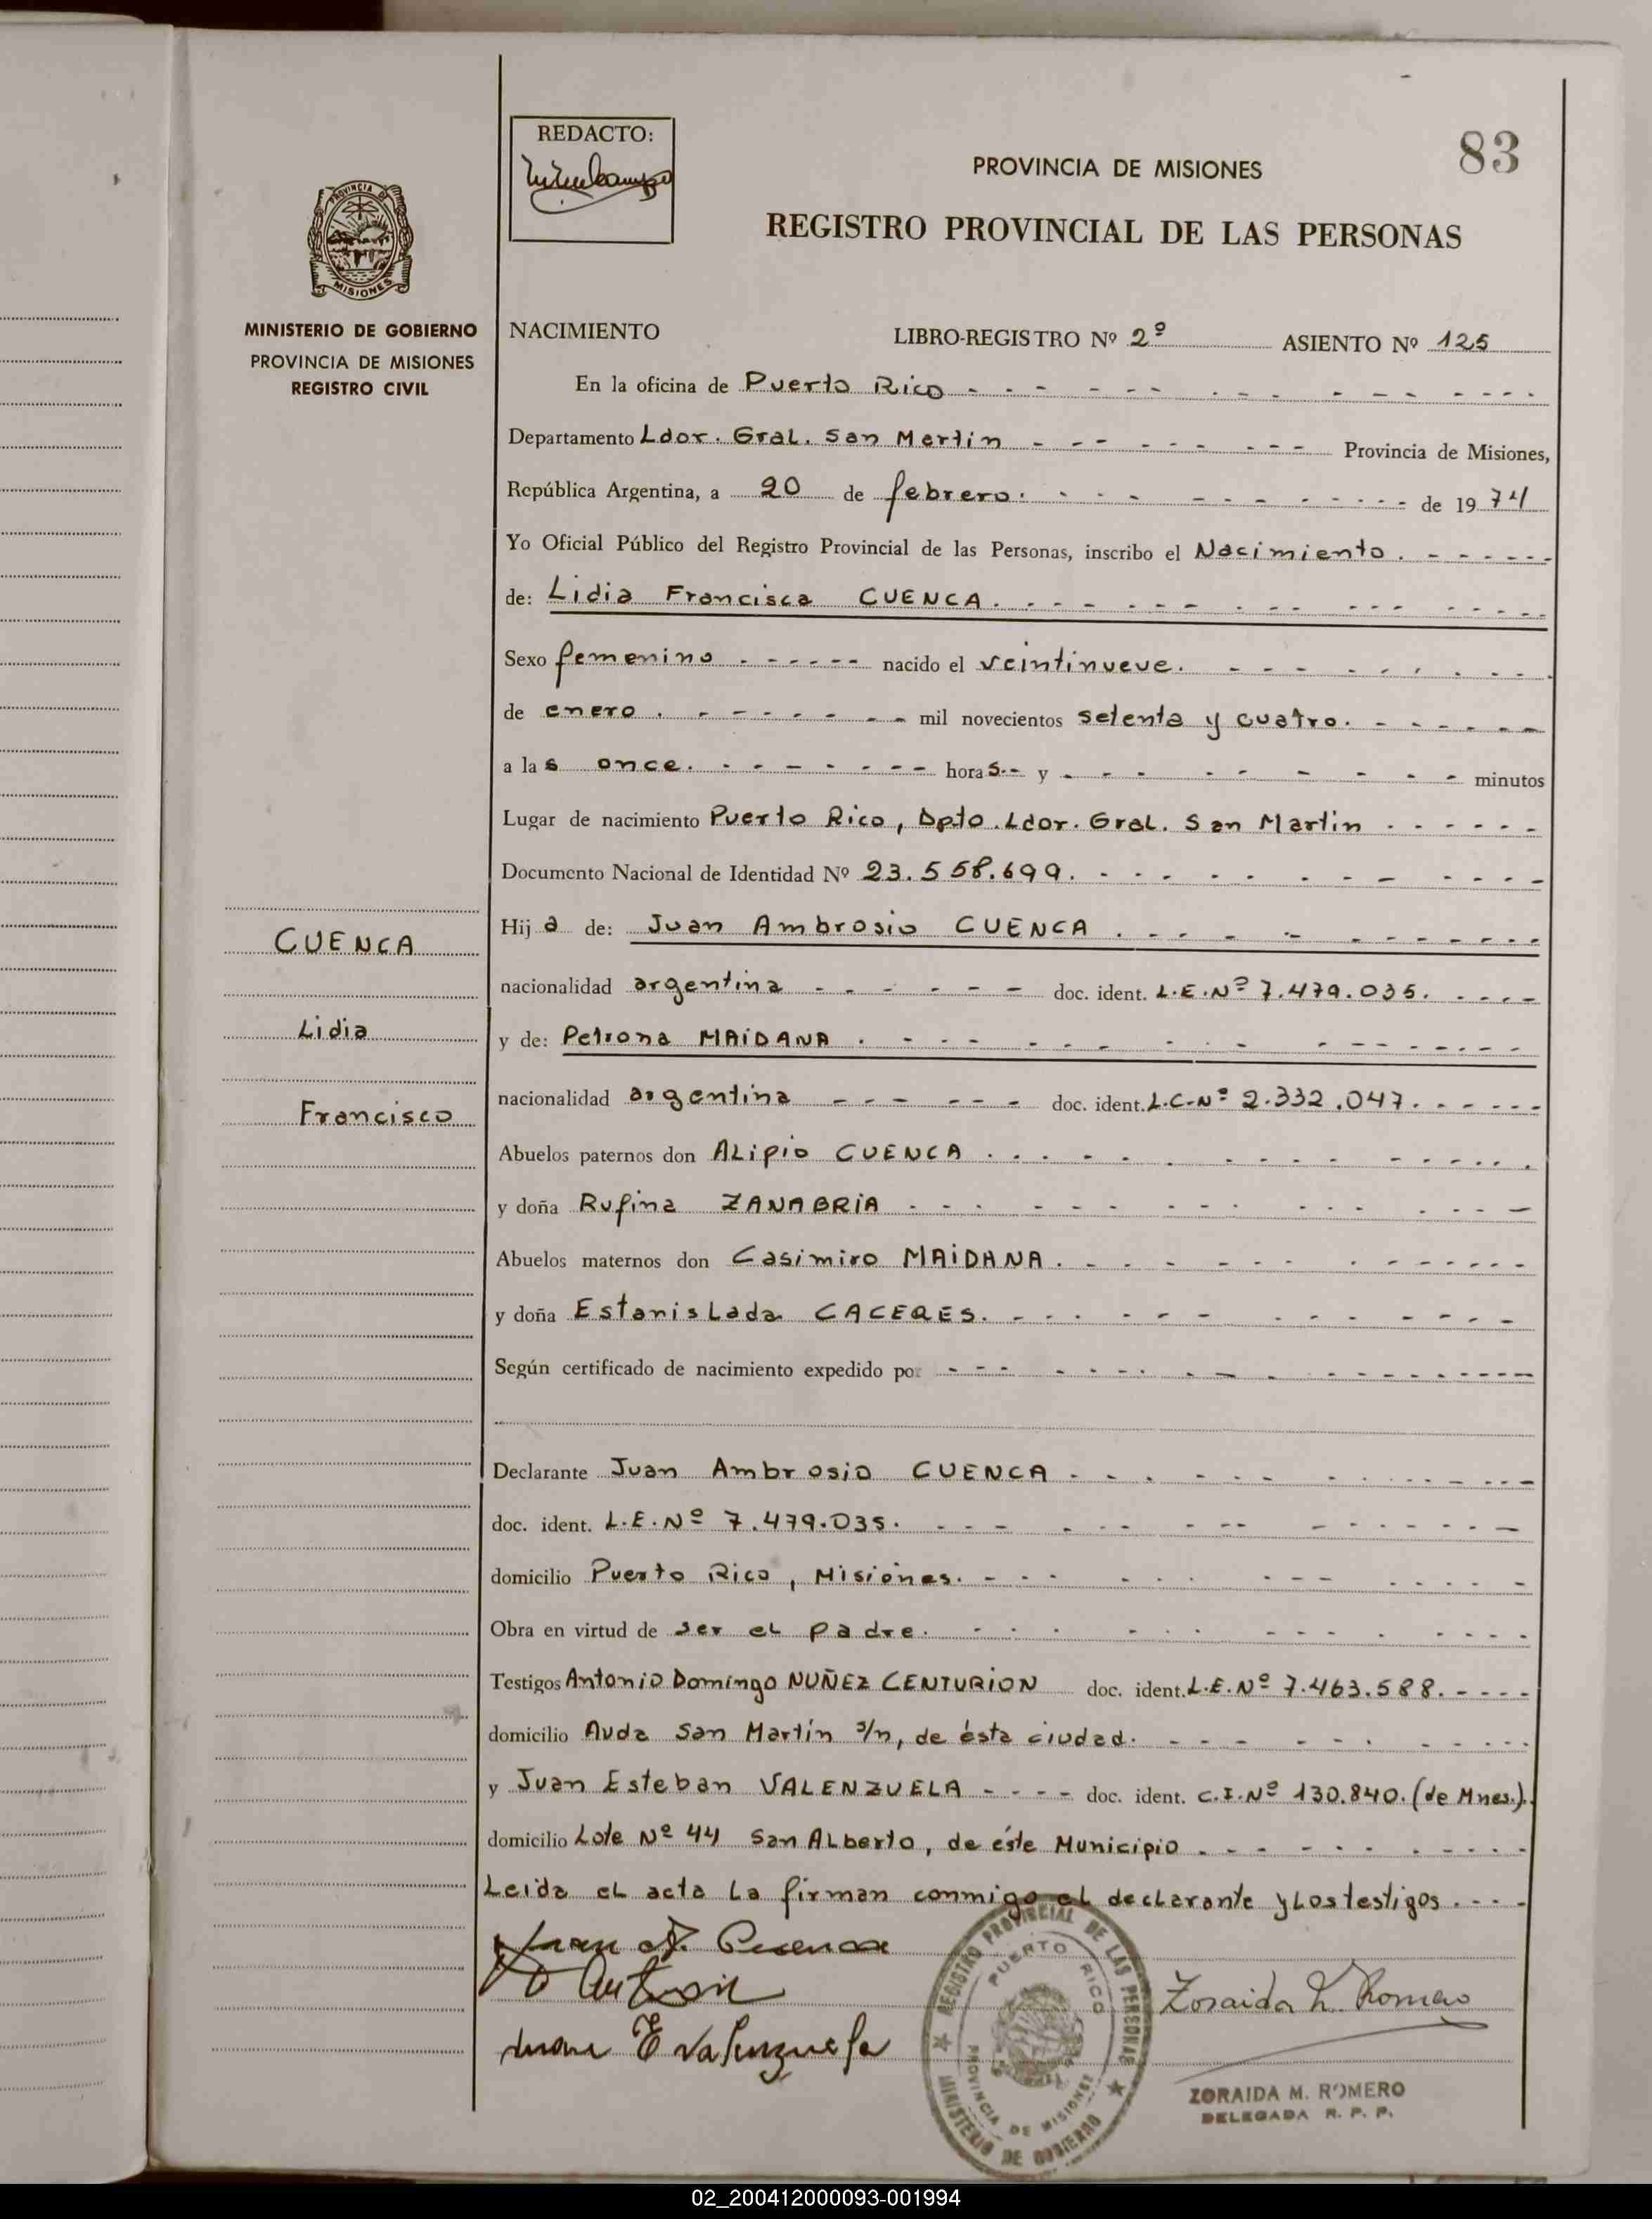 REDACTO:
83
PROVINCIA DE MISIONES
REGISTRO PROVINCIAL DE LAS PERSONAS
PROVINCIA DE
MISIONES
MINISTERIO DE GOBIERNO
PROVINCIA DE MISIONES
REGISTRO CIVIL
NACIMIENTO LIBRO-REGISTRO Nº 2º ASIENTO Nº 125
En la oficina de Puerto Rico
Departamento Ldor. Gral. San Martin Provincia de Misiones,
República Argentina, a 20 de febrero. de 19 74
Yo Oficial Público del Registro Provincial de las Personas, inscribo el Nacimiento.
de: Lidia Francisca CUENCA.
Sexo femenino nacido el veintinueve.
de enero. mil novecientos setenta y cuatro.
a las once. horas.-- y minutos
Lugar de nacimiento Puerto Rico, Dpto. Ldor. Gral. San Martin
Documento Nacional de Identidad Nº 23.558.699.
Hija de: Juan Ambrosio CUENCA.
nacionalidad argentina doc. ident. L.E.Nº 7.479.035.
y de: Petrona MAIDANA.
nacionalidad argentina doc. ident. L.C.Nº 2.332.047.
Abuelos paternos don ALipio CUENCA
y doña Rufina ZANABRIA
Abuelos maternos don Casimiro MAIDANA.
y doña EstanisLada CACERES.
Según certificado de nacimiento expedido por
Declarante Juan Ambrosio CUENCA
doc. ident. L.E.Nº 7.479.035.
domicilio Puerto Rico, Misiones.
Obra en virtud de ser el padre.
Testigos Antonio Domingo NUÑEZ CENTURION doc. ident. L.E.Nº 7.463.588.
domicilio Avda San Martín s/n, de ésta ciudad.
y Juan Esteban VALENZUELA doc. ident. C.I.Nº 130.840. (de Mnes.).
domicilio Lote Nº 44 San ALberto, de éste Municipio
Leida el acta la firman conmigo el declarante y los testigos.
CUENCA
Lidia
Francisco
Juan A. Cuenca
Juan E Valenzuela
REGISTRO PROVINCIAL DE LAS PERSONAS
PUERTO RICO
PROVINCIA DE MISIONES
MINISTERIO DE GOBIERNO
Zoraida M. Romero
ZORAIDA M. ROMERO
DELEGADA R. P. P.
02_200412000093-001994